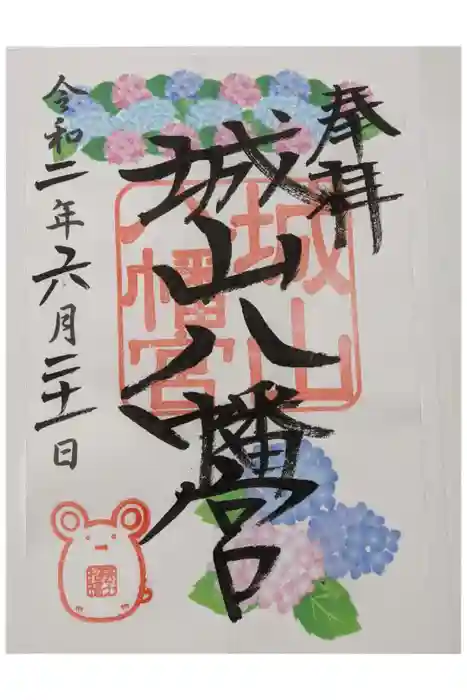 奉拝
城山八幡宮
城山
八幡宮
令和二年六月二十一日